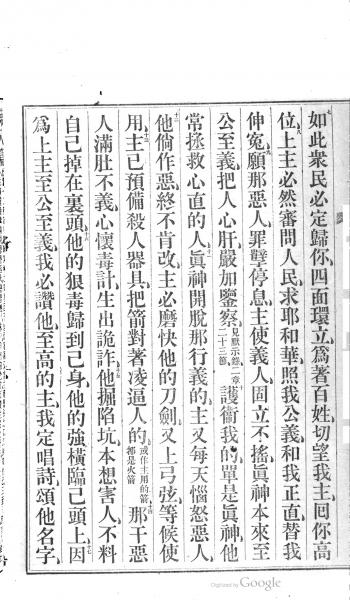 如此衆民必定歸你四面環立爲著百姓切望我主回你高
位上主必然審問人民求耶和華照我公義和我正直替我
伸寃願那惡人罪孽停息主使義人固立不搖眞神本來至
公至義把人心肝嚴加鑒察見默示然二章二十三節護衞我的單是眞神他
常拯救心直的人眞神開脫那行義的主又每天惱怒惡人
他倘作惡終不肯改主必磨快他的刀劍又上弓弦等候使
用主已預備殺人器具把箭對著凌逼人的或作主用的箭都是火箭那干惡
人滿肚不義心懷毒計生出詭詐他掘陷坑本想害人不料
自己掉在裏頭他的狠毒歸到己身他的強橫臨己頭上因
爲上主至公至義我必讚他至高的主我定唱詩頌他名字
Digitized by Google